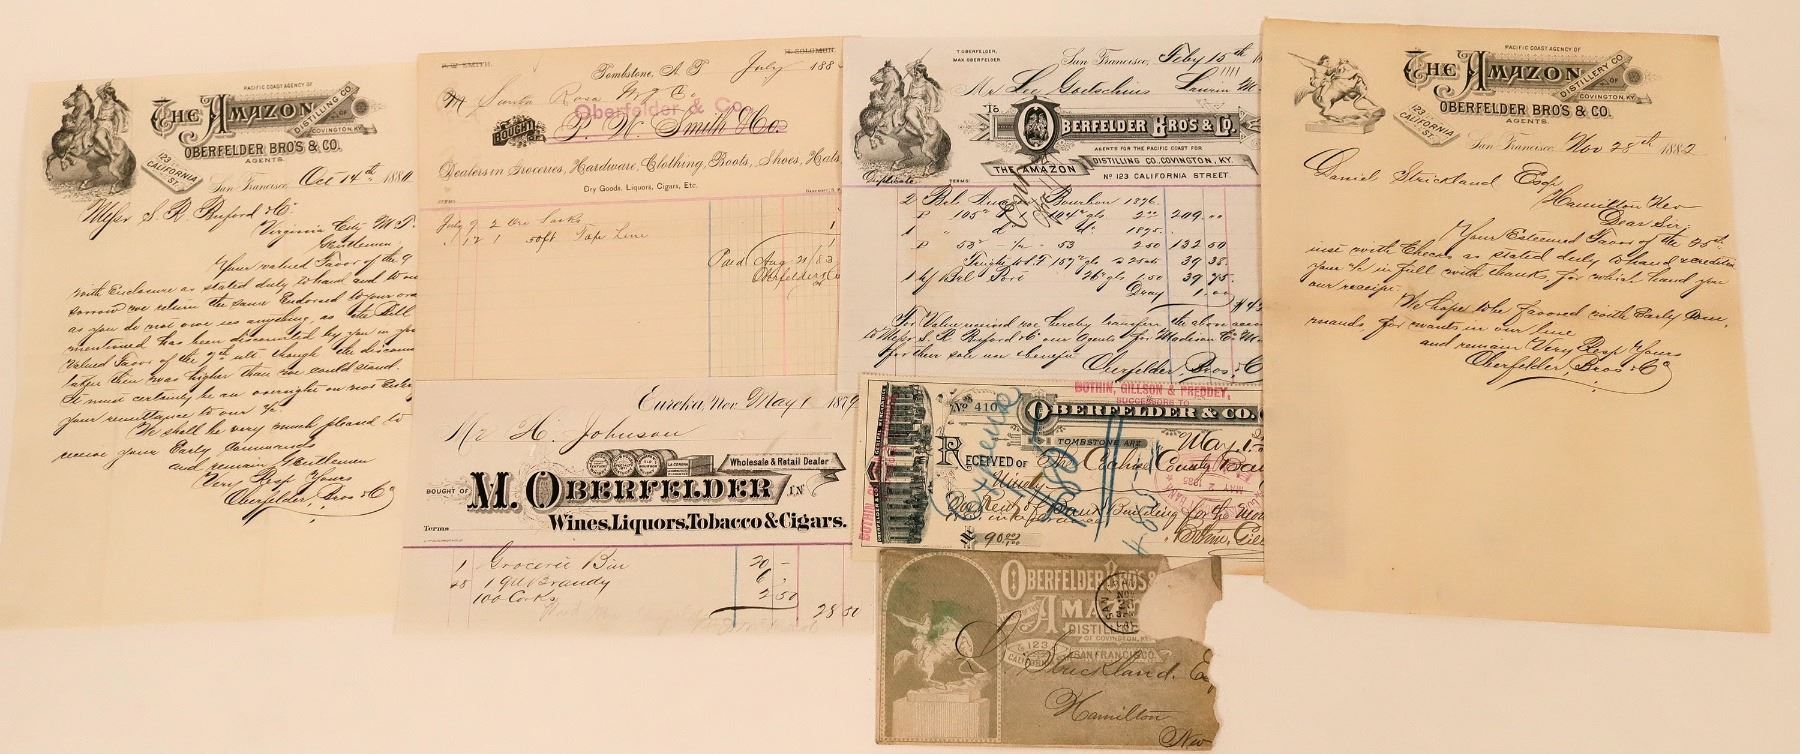 PACIFIC COAST AGENCY OF
THE AMAZON
DISTILLING CO. OF
COVINGTON, KY.
OBERFELDER BRO'S & CO.
AGENTS.
123 CALIFORNIA ST.
San Francisco, Oct 14th 1880
Messr S. R. Buford & Co
Virginia City M.T.
Gentlemen
Your valued Favor of the 9
with Enclosure as stated duly to hand and to our
sorrow we return the same Endorsed to your order
as you do not owe us anything, as the Bill
mentioned has been discounted by you in your
Valued Favor of the 7th ult though the discount
taken then was higher than we could stand.
It must certainly be an oversight on not
your remittance to our %
We shall be very much pleased to
receive your Early Commands
and remain Gentlemen
Very Resp Yours
Oberfelder Bros & Co
P. W. SMITH.
H. SOLOMON.
Tombstone, A. T. July 188
M Santa Rosa Mg Co
Oberfelder & Co.
BOUGHT OF P. W. Smith & Co.
Dealers in Groceries, Hardware, Clothing, Boots, Shoes, Hats,
Dry Goods, Liquors, Cigars, Etc.
TERMS
July 9 2 Ore Sacks
" 12 1 50ft Tape Line
Paid Aug 21/83
Oberfelder & Co
Eureka, Nev. May 1 1879
Mr H. Johnson
BOUGHT OF M. OBERFELDER
Wholesale & Retail Dealer
IN
Wines, Liquors, Tobacco & Cigars.
Terms
1 Grocerie Bin 20 –
1 gall Brandy 6
100 Corks 2 50
28 50
T. OBERFELDER.
MAX OBERFELDER.
San Francisco, Feby 15th
Mr Lee Goetschius Laurin M
To OBERFELDER BRO'S & CO.
AGENTS FOR THE PACIFIC COAST FOR
THE AMAZON DISTILLING CO., COVINGTON, KY.
No 123 CALIFORNIA STREET.
Duplicate
TERMS:
2 Bbl Bourbon 1876
P 105° 104½ gls 2.00 209.00
P 53 2.50 132 50
39 38
1 ½ Bbl Port 26½ gls 1.50 39.75
Dray 1.00
For Value received we hereby transfer the above
to Messr S. R. Buford & Co our Agents for Madison Co
for their sole use & benefit
Oberfelder Bros & Co
BOTHIN, GILLSON & PREDDEY,
SUCCESSORS TO
No 410
OBERFELDER & CO.
TOMBSTONE ARIZ. May 1st
RECEIVED OF The Cochise County Ban
Ninety
One Rent of Bank Building for the Mon
$ 90.00
Expense
MAY 2 1885
OBERFELDER BRO'S &
AMAZON
DISTILLING
OF COVINGTON, KY.
123
CALIFORNIA ST.
SAN FRANCISCO
D. Strickland. Esq
Hamilton
Nev
PACIFIC COAST AGENCY OF
THE AMAZON
DISTILLERY CO OF
COVINGTON, KY.
OBERFELDER BRO'S & CO.
AGENTS.
123 CALIFORNIA ST.
San Francisco, Nov 28th 1882
Daniel Strickland Esq
Hamilton Nev
Dear Sir,
Your Esteemed Favor of the 25th
inst with Checks as stated duly to hand & credited
your % in full with thanks, for which hand you
our receipt.
We hope to be favored with Early Com
mands for wants in our line
and remain Very Resp Yours
Oberfelder Bros & Co